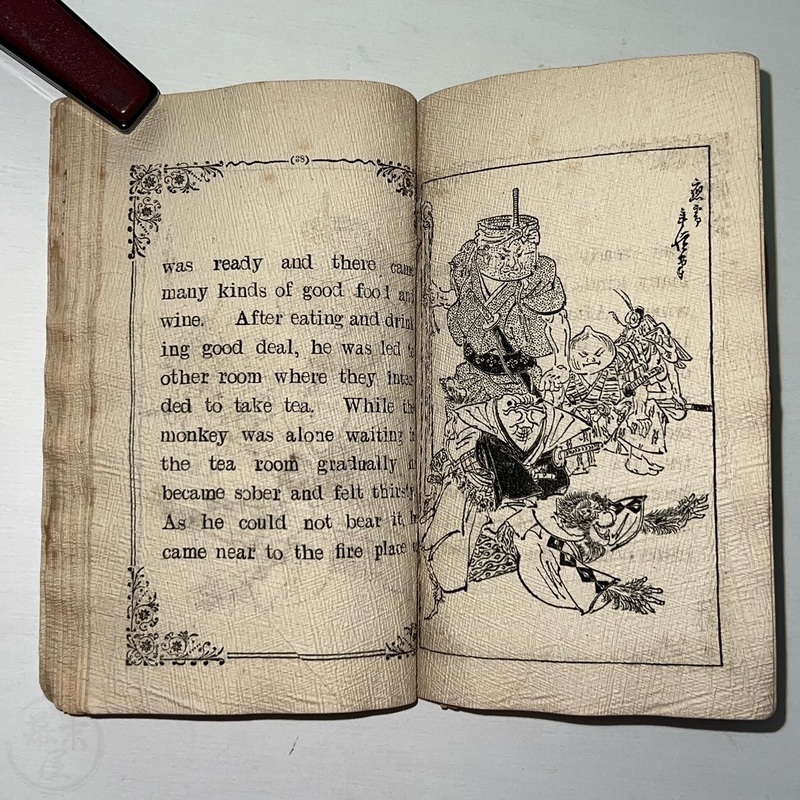 (38)
was ready and there came
many kinds of good food an
wine. After eating and drin
ing good deal, he was led t
other room where they inten
ded to take tea. While the
monkey was alone waiting
the tea room gradually
became sober and felt thirsty
As he could not bear it, h
came near to the fire place
應需
年恒筆